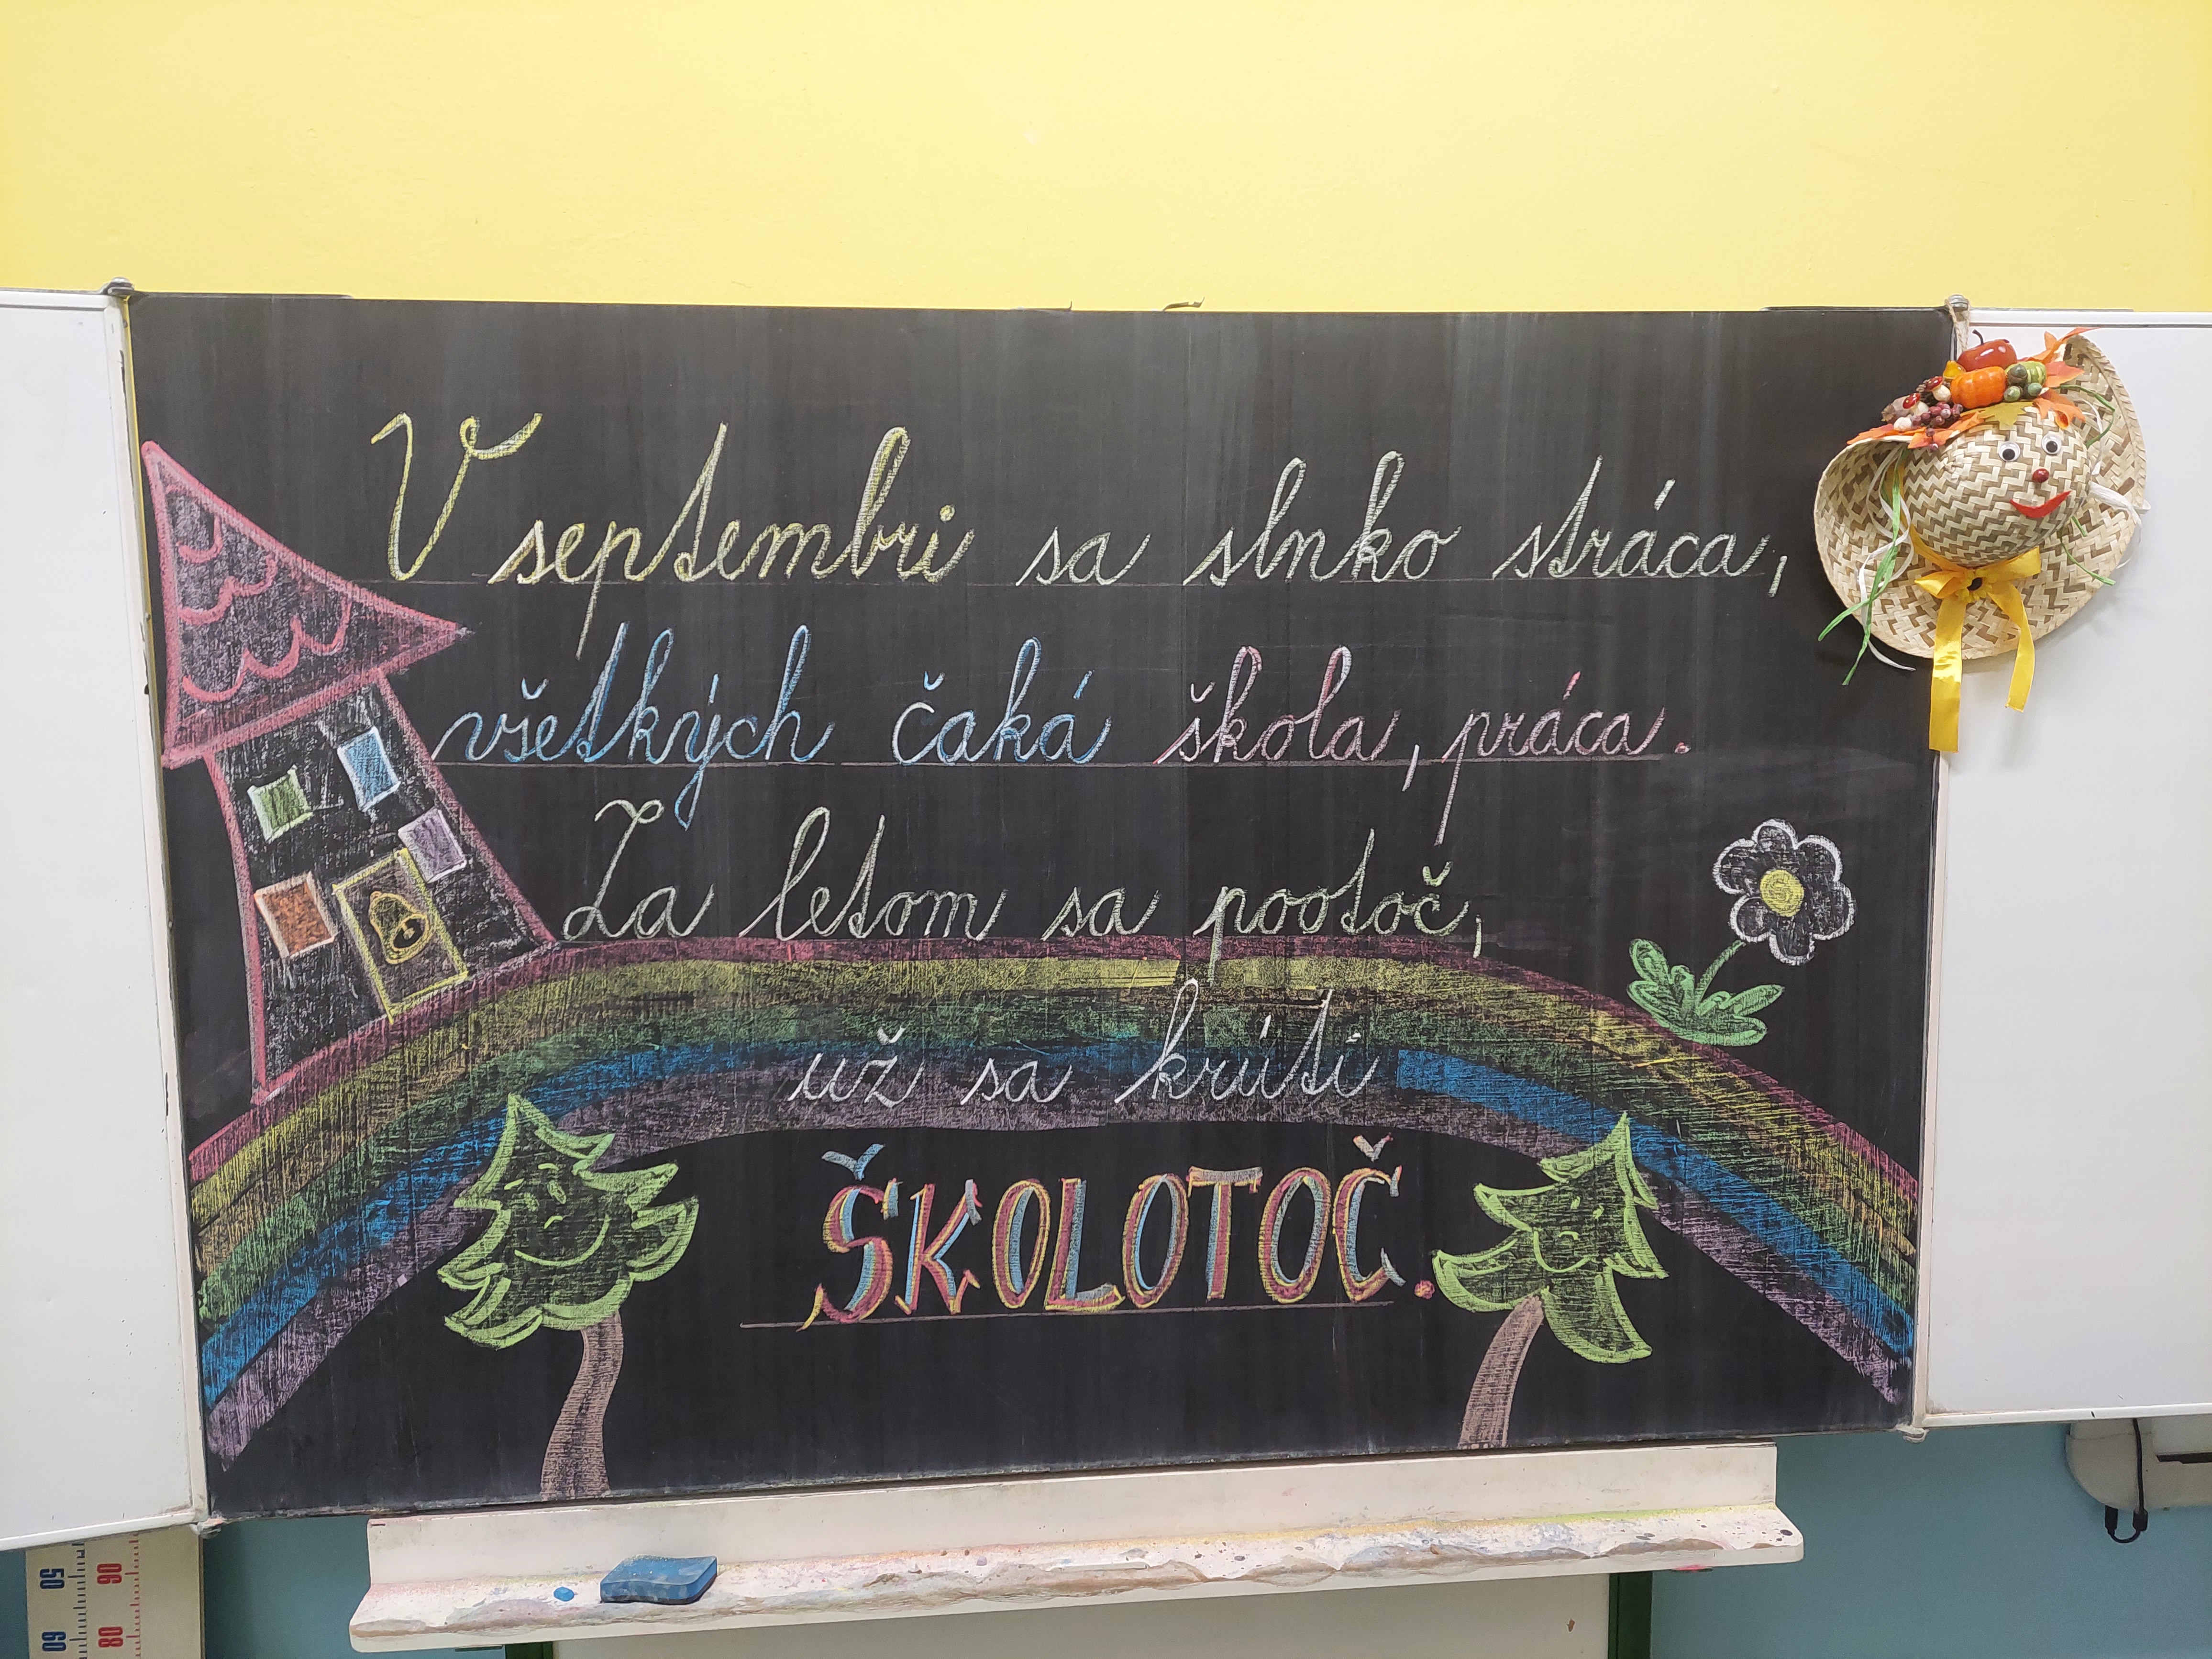 V septembri sa slnko stráca,
všetkých čaká škola, práca.
Za letom sa pootoč,
už sa krúti
ŠKOLOTOČ.
50 90
60 80